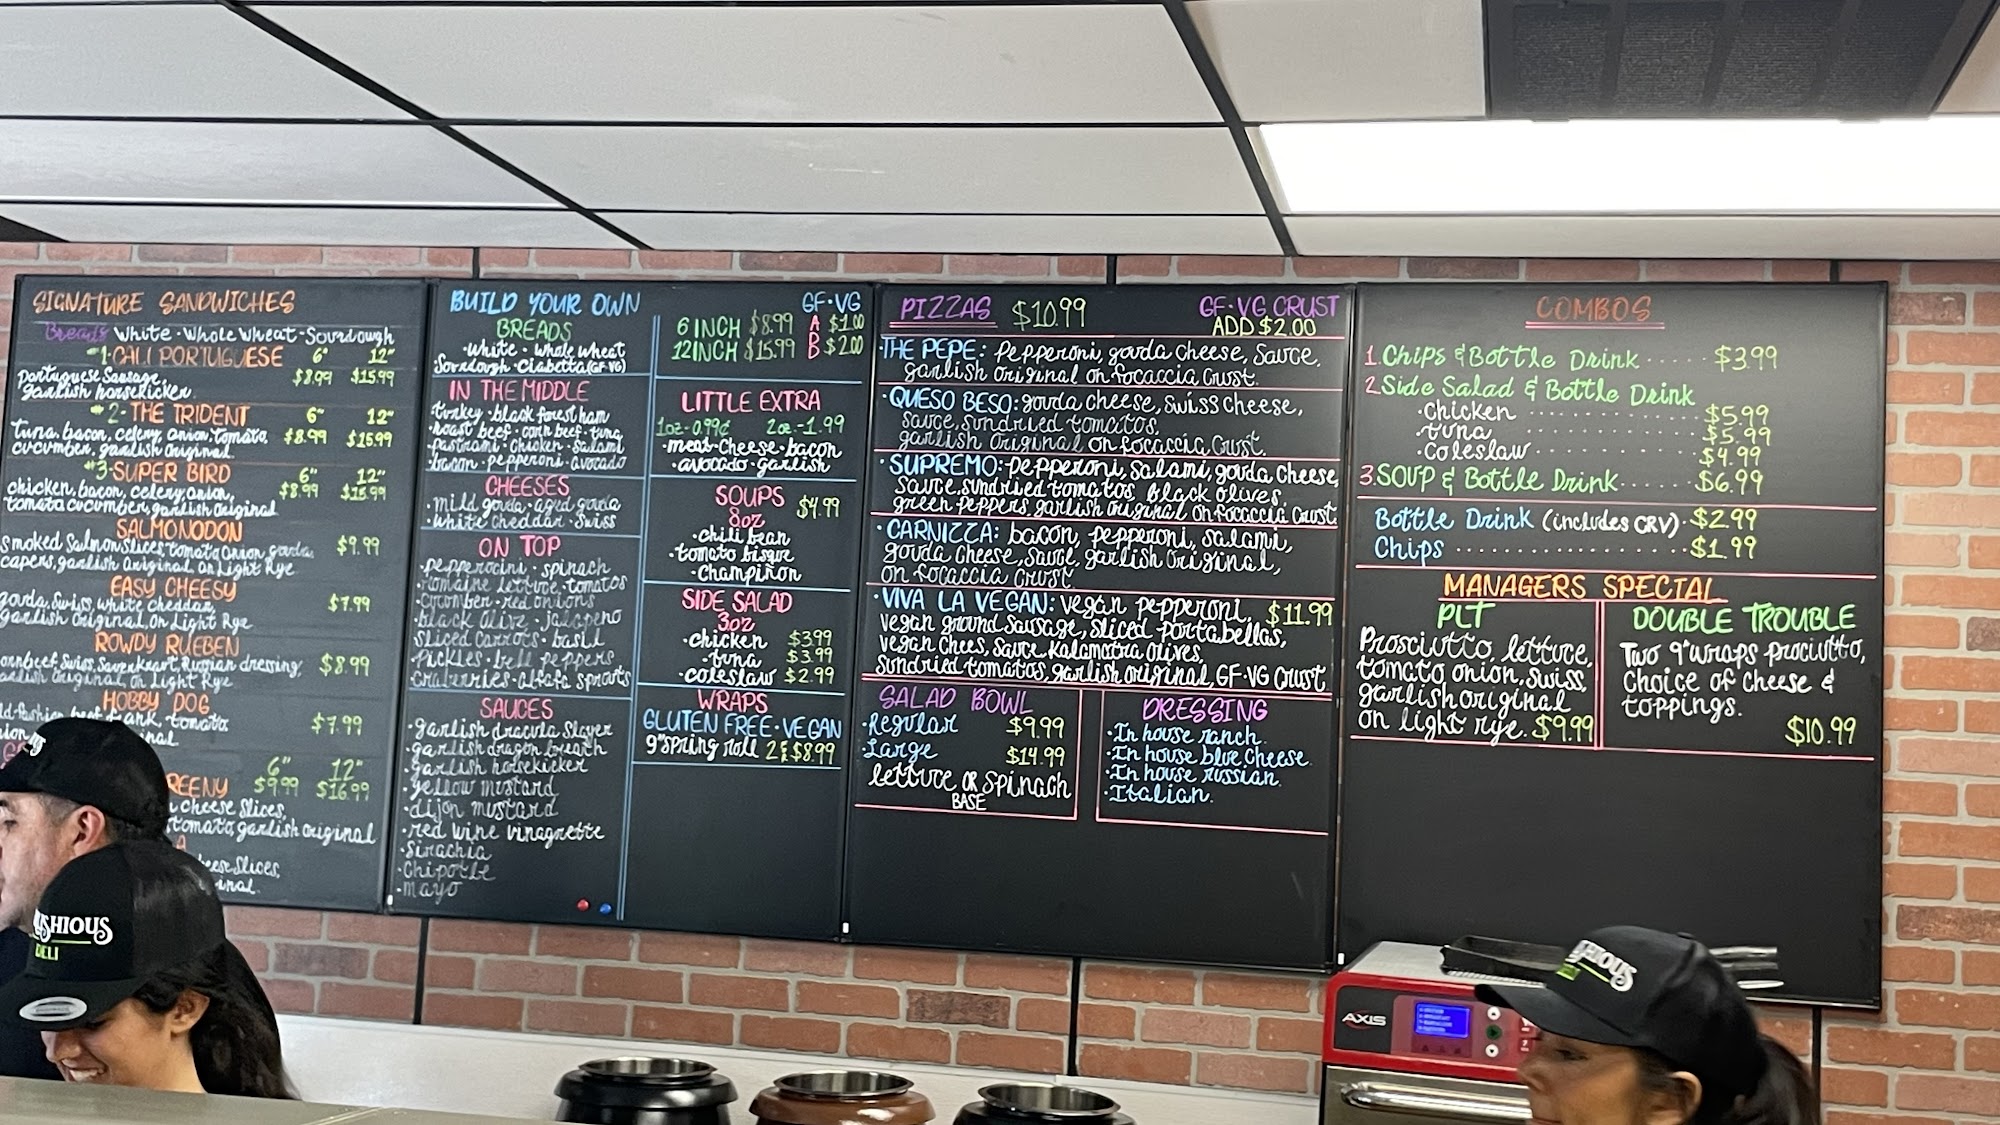 SIGNATURE SANDWICHES
Breads White · Whole Wheat · Sourdough
#1 · CALI PORTUGUESE 6" 12"
Portuguese Sausage, $8.99 $15.99
garlish horsekicker.
#2 · THE TRIDENT 6" 12"
Tuna, bacon, celery, onion, tomato, $8.99 $15.99
cucumber, garlish original.
#3 · SUPER BIRD 6" 12"
chicken, bacon, celery, onion, $8.99 $15.99
tomato cucumber, garlish original
SALMONODON
smoked Salmon Slices, tomato, onion, gouda, $9.99
capers, garlish original, on Light Rye
EASY CHEESY
gouda, Swiss, white cheddar, $7.99
garlish original, on Light Rye
ROWDY RUEBEN
Swiss, Sauerkraut, Russian dressing, $8.99
garlish original, on Light Rye
HOBBY DOG
tomato, $7.99
6" 12"
REENY $9.99 $16.99
cheese Slices,
tomato, garlish original
Slices,
BUILD YOUR OWN
BREADS
· White · whole wheat
Sourdough · Ciabetta (GF·VG)
IN THE MIDDLE
· turkey · black forest ham
· roast beef · corn beef · tuna
· pastrami · chicken · Salami
· bacon · pepperoni · avocado
CHEESES
· mild gouda · aged gouda
· white cheddar · Swiss
ON TOP
· pepperocini · spinach
· romaine lettuce · tomatos
· cucumber · red onions
· black olive · jalapeno
· Sliced carrots · basil
· pickles · bell peppers
· craberries · alfafa sprouts
SAUCES
· garlish dracula slayer
· garlish dragon breath
· garlish horsekicker
· yellow mustard
· dijon mustard
· red wine vinagrette
· Sirachia
· Chipotle
· Mayo
GF·VG
6 INCH $8.99 A $1.00
12 INCH $15.99 B $2.00
LITTLE EXTRA
1oz - 0.99¢ 2oz - 1.99
· meat · cheese · bacon
· avocado · garlish
SOUPS $4.99
8oz
· chili bean
· tomato bisque
· Champiñon
SIDE SALAD
3oz
· chicken $3.99
· tuna $3.99
· coleslaw $2.99
WRAPS
GLUTEN FREE · VEGAN
9" spring roll 2 $8.99
PIZZAS $10.99 GF·VG CRUST
ADD $2.00
· THE PEPE: Pepperoni, gouda cheese, Sauce,
garlish original on focaccia Crust.
· QUESO BESO: gouda cheese, Swiss cheese,
sauce, sundried tomatos,
garlish original on focaccia Crust.
· SUPREMO: pepperoni, salami, gouda cheese,
sauce, sundried tomatos, black olives,
green peppers, garlish original on focaccia Crust
· CARNIZZA: bacon, pepperoni, salami,
gouda cheese, sauce, garlish original,
on focaccia crust
· VIVA LA VEGAN: vegan pepperoni, $11.99
vegan ground sausage, sliced portabellas,
vegan chees, sauce, Kalamatra olives,
sundried tomatos, garlish original, GF-VG Crust
SALAD BOWL
· Regular $9.99
· Large $14.99
lettuce OR spinach
BASE
DRESSING
· In house ranch.
· In house blue cheese.
· In house russian.
· Italian.
COMBOS
1. Chips & Bottle Drink ..... $3.99
2. Side Salad & Bottle Drink
· chicken .......... $5.99
· tuna .......... $5.99
· coleslaw .......... $4.99
3. SOUP & Bottle Drink ..... $6.99
Bottle Drink (includes CRV) · $2.99
Chips .......... $1.99
MANAGERS SPECIAL
PLT
Prosciutto, lettuce,
tomato, onion, swiss,
garlish original
on light rye. $9.99
DOUBLE TROUBLE
Two 9" wraps prociutto,
Choice of cheese &
toppings.
$10.99
SHIOUS
DELI
AXIS